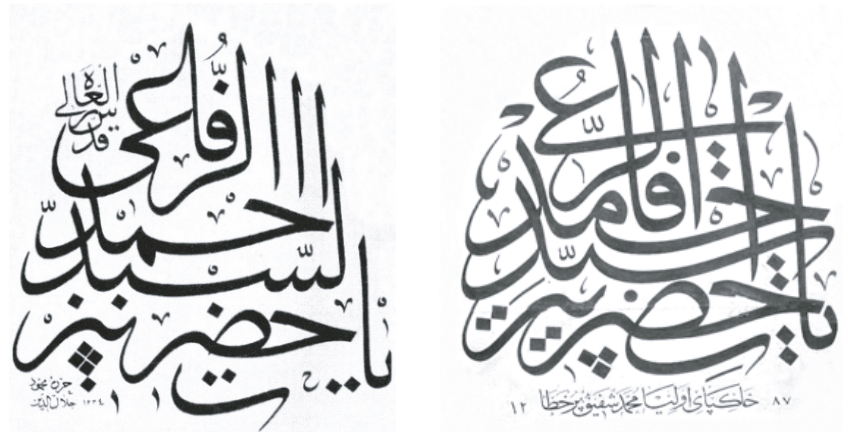 يا حضرت پير
السيد
احمد
الرفاعي
قدس سره العالي
محمود
جلال الدين
يا حضرت پير
سيد
احمد
الرفاعي
٨٧ خاكپاى اوليا محمد شفيق پرخطا ١٢